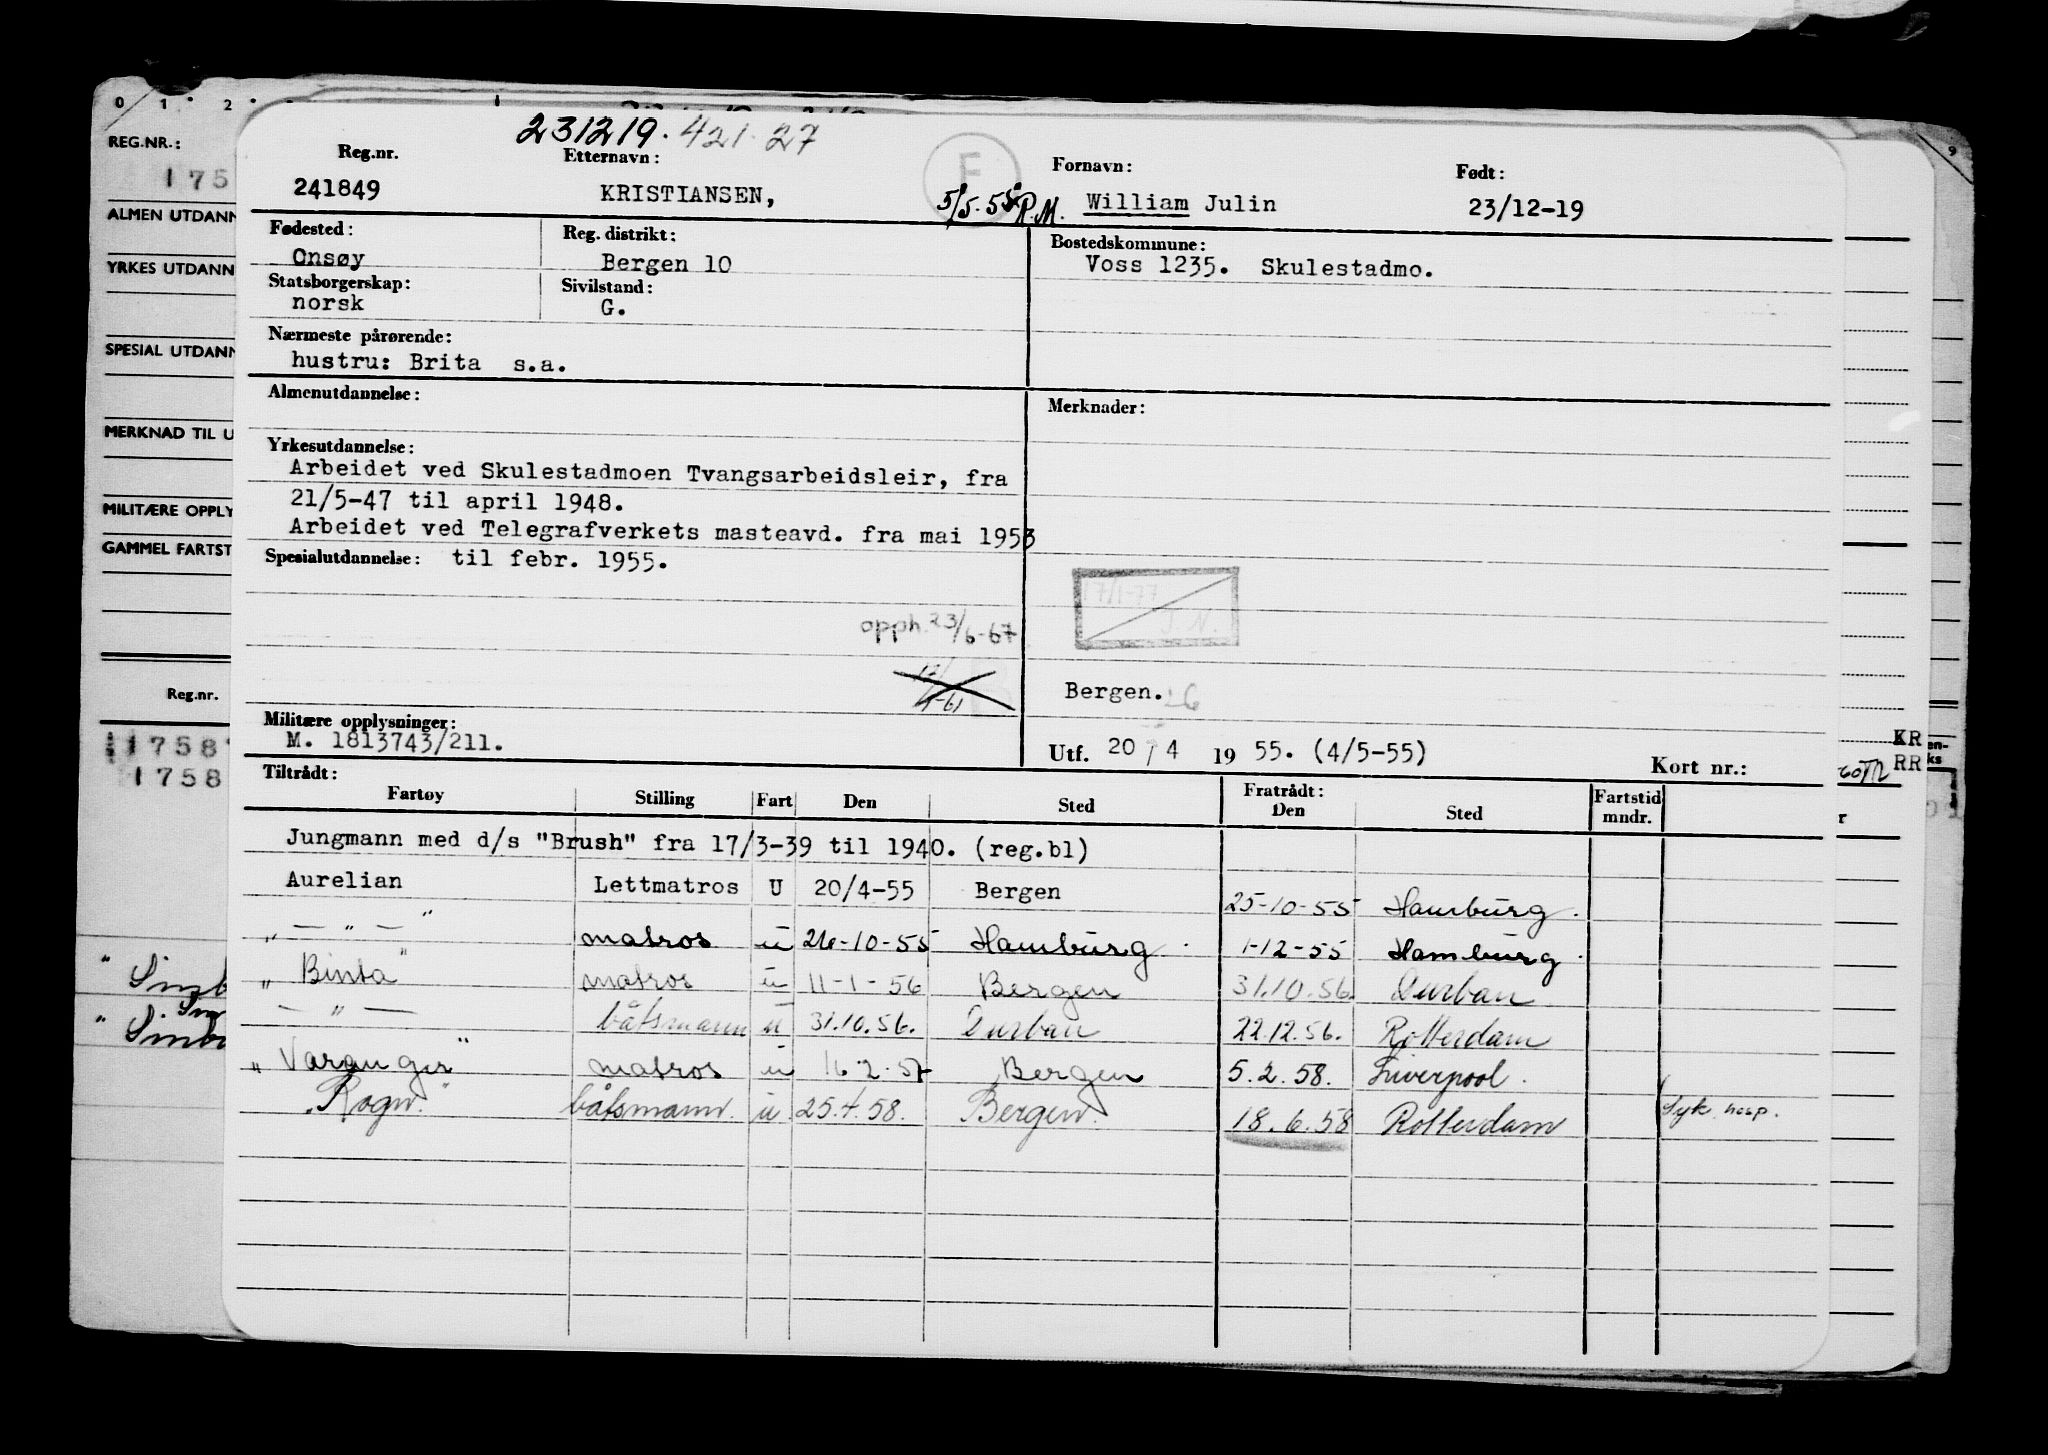 0 1 2
9
REG.NR.:
175
ALMEN UTDANN
YRKES UTDANN
SPESIAL UTDANN
MERKNAD TIL U
MILITÆRE OPPLY
GAMMEL FARTST
Reg.nr.
1758
1758
231219. 421.27
Reg.nr. Etternavn: Fornavn: Født:
241849 KRISTIANSEN, 5/5.55 R.M. William Julin 23/12-19
F
Fødested: Reg. distrikt: Bostedskommune:
Onsøy Bergen 10 Voss 1235. Skulestadmo.
Statsborgerskap: Sivilstand:
norsk G.
Nærmeste pårørende:
hustru: Brita s.a.
Almenutdannelse: Merknader:
Yrkesutdannelse:
Arbeidet ved Skulestadmoen Tvangsarbeidsleir, fra
21/5-47 til april 1948.
Arbeidet ved Telegrafverkets masteavd. fra mai 1953
Spesialutdannelse: til febr. 1955.
7/1-77
J.N.
opph. 23/6-67
Bergen. 26
Militære opplysninger:
M. 1813743/211.
Utf. 20/4 1955. (4/5-55) Kort nr.:
KR
RR
Tiltrådt: Fratrådt:
Fartøy Stilling Fart Den Sted Den Sted Fartstid mndr.
Jungmann med d/s "Brush" fra 17/3-39 til 1940. (reg.bl)
Aurelian Lettmatros U 20/4-55 Bergen 25-10-55 Hamburg.
" — " — " matros u 26-10-55 Hamburg. 1-12-55 Hamburg.
"Binta" matros u 11-1-56 Bergen 31.10.56. Durban
— " — båtsmann u 31.10.56. Durban 22.12.56. Rotterdam
"Varanger" matros u 16.2.57 Bergen 5.2.58. Liverpool.
"Rogn." båtsmann. u 25.4.58. Bergen. 18.6.58 Rotterdam Syk. hosp.